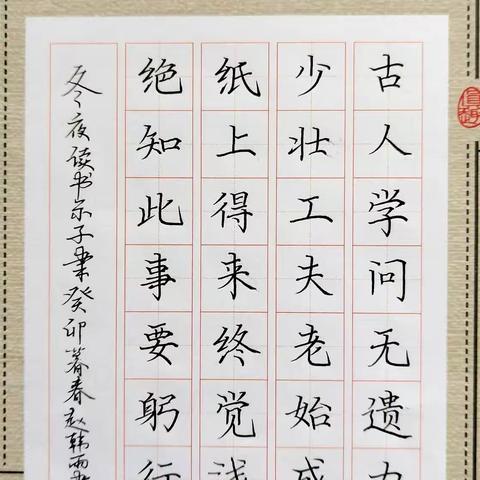 古人学问无遗力
少壮工夫老始成
纸上得来终觉浅
绝知此事要躬行
冬夜读书示子聿癸卯暮春赵韩雨